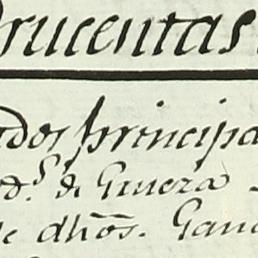 rucentas
dos principa
d.s de Grueza
e dhōs. Gana